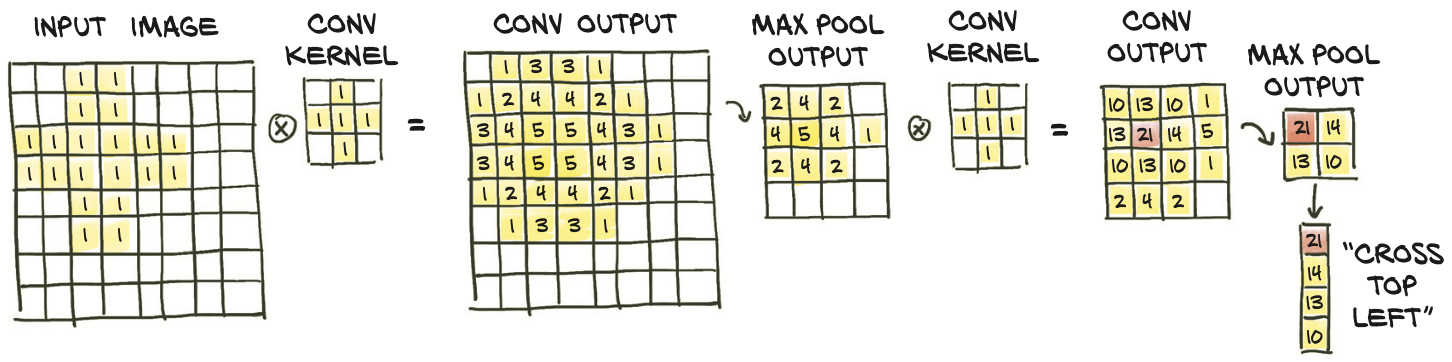 INPUT IMAGE
1 1
1 1
1 1 1 1 1 1
1 1 1 1 1 1
1 1
1 1
⊗
CONV
KERNEL
1
1 1 1
1
=
CONV OUTPUT
1 3 3 1
1 2 4 4 2 1
3 4 5 5 4 3 1
3 4 5 5 4 3 1
1 2 4 4 2 1
1 3 3 1
MAX POOL
OUTPUT
2 4 2
4 5 4 1
2 4 2
⊗
CONV
KERNEL
1
1 1 1
1
=
CONV
OUTPUT
10 13 10 1
13 21 14 5
10 13 10 1
2 4 2
MAX POOL
OUTPUT
21 14
13 10
21
14
13
10
"CROSS
TOP
LEFT"